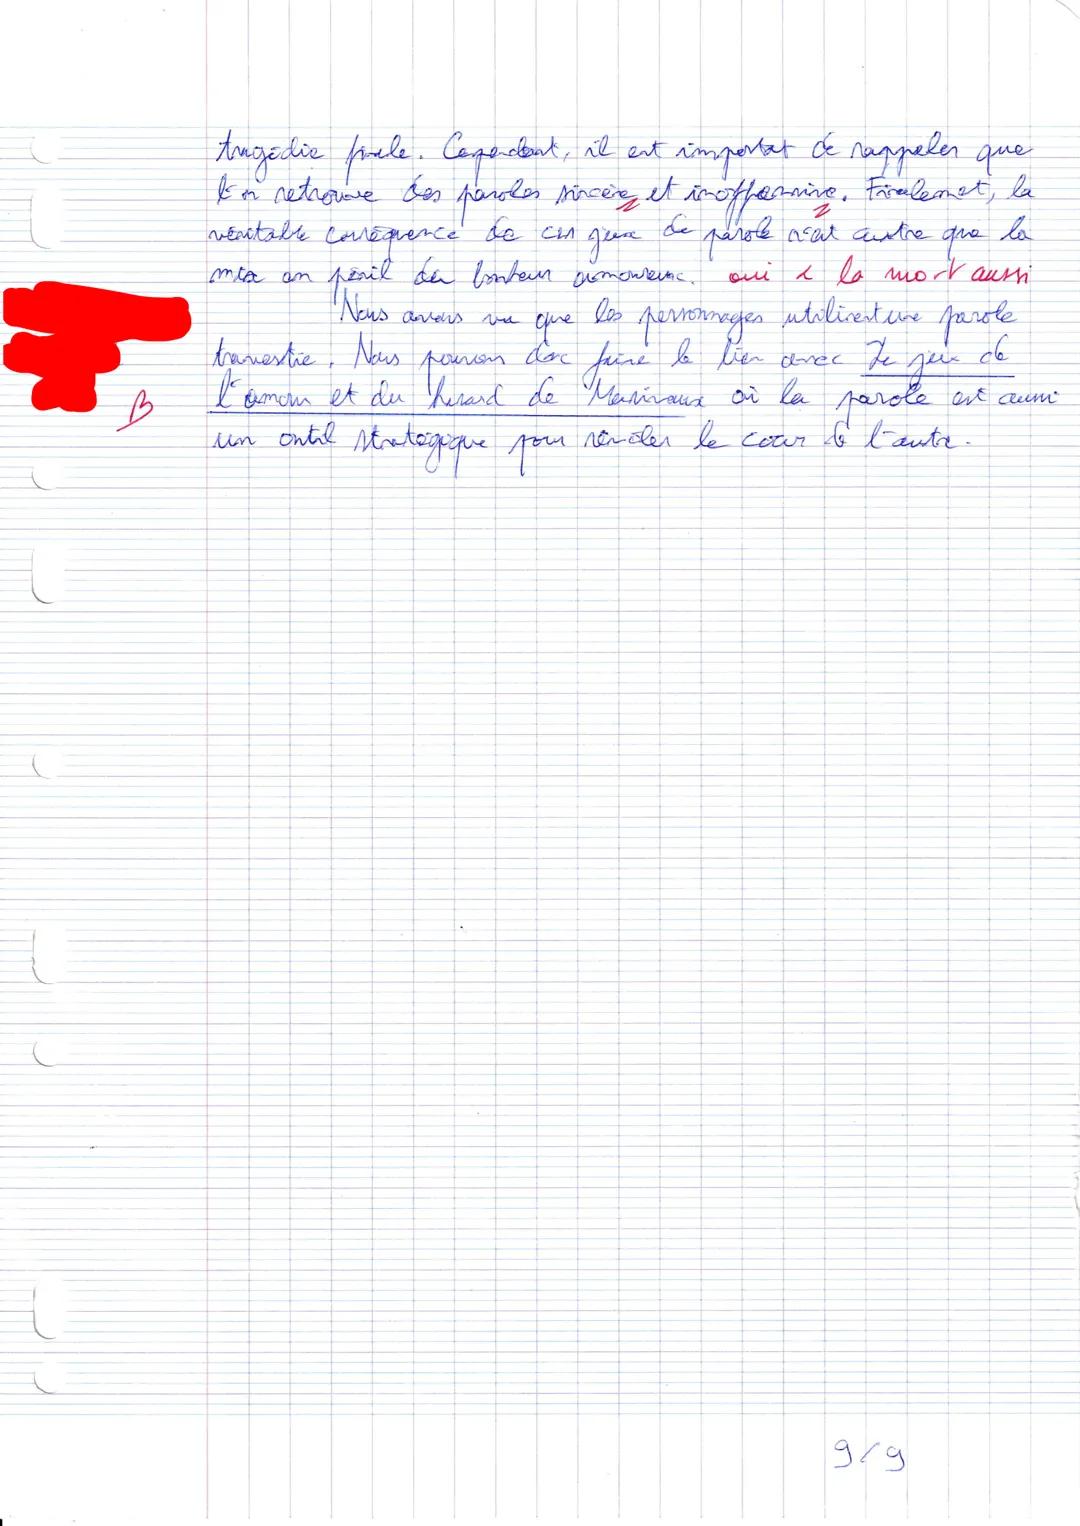 tragédie finale. Cependant, il est importat de rappeler que
l'on retrouve des paroles sincère et inoffensive. Finalemet, la
véritable conséquence de ces jeux de parole n'est autre que la
mise en péril du bonheur amoureux. oui & la mort aussi
Nous avons vu que les personnages utilisent une parole
travestie. Nous pouvons donc faire le lien avec Le jeu de
l'amour et du hasard de Marivaux où la parole est aussi
B
un outil stratégique pour révéler le cœur de l'autre.
9/9